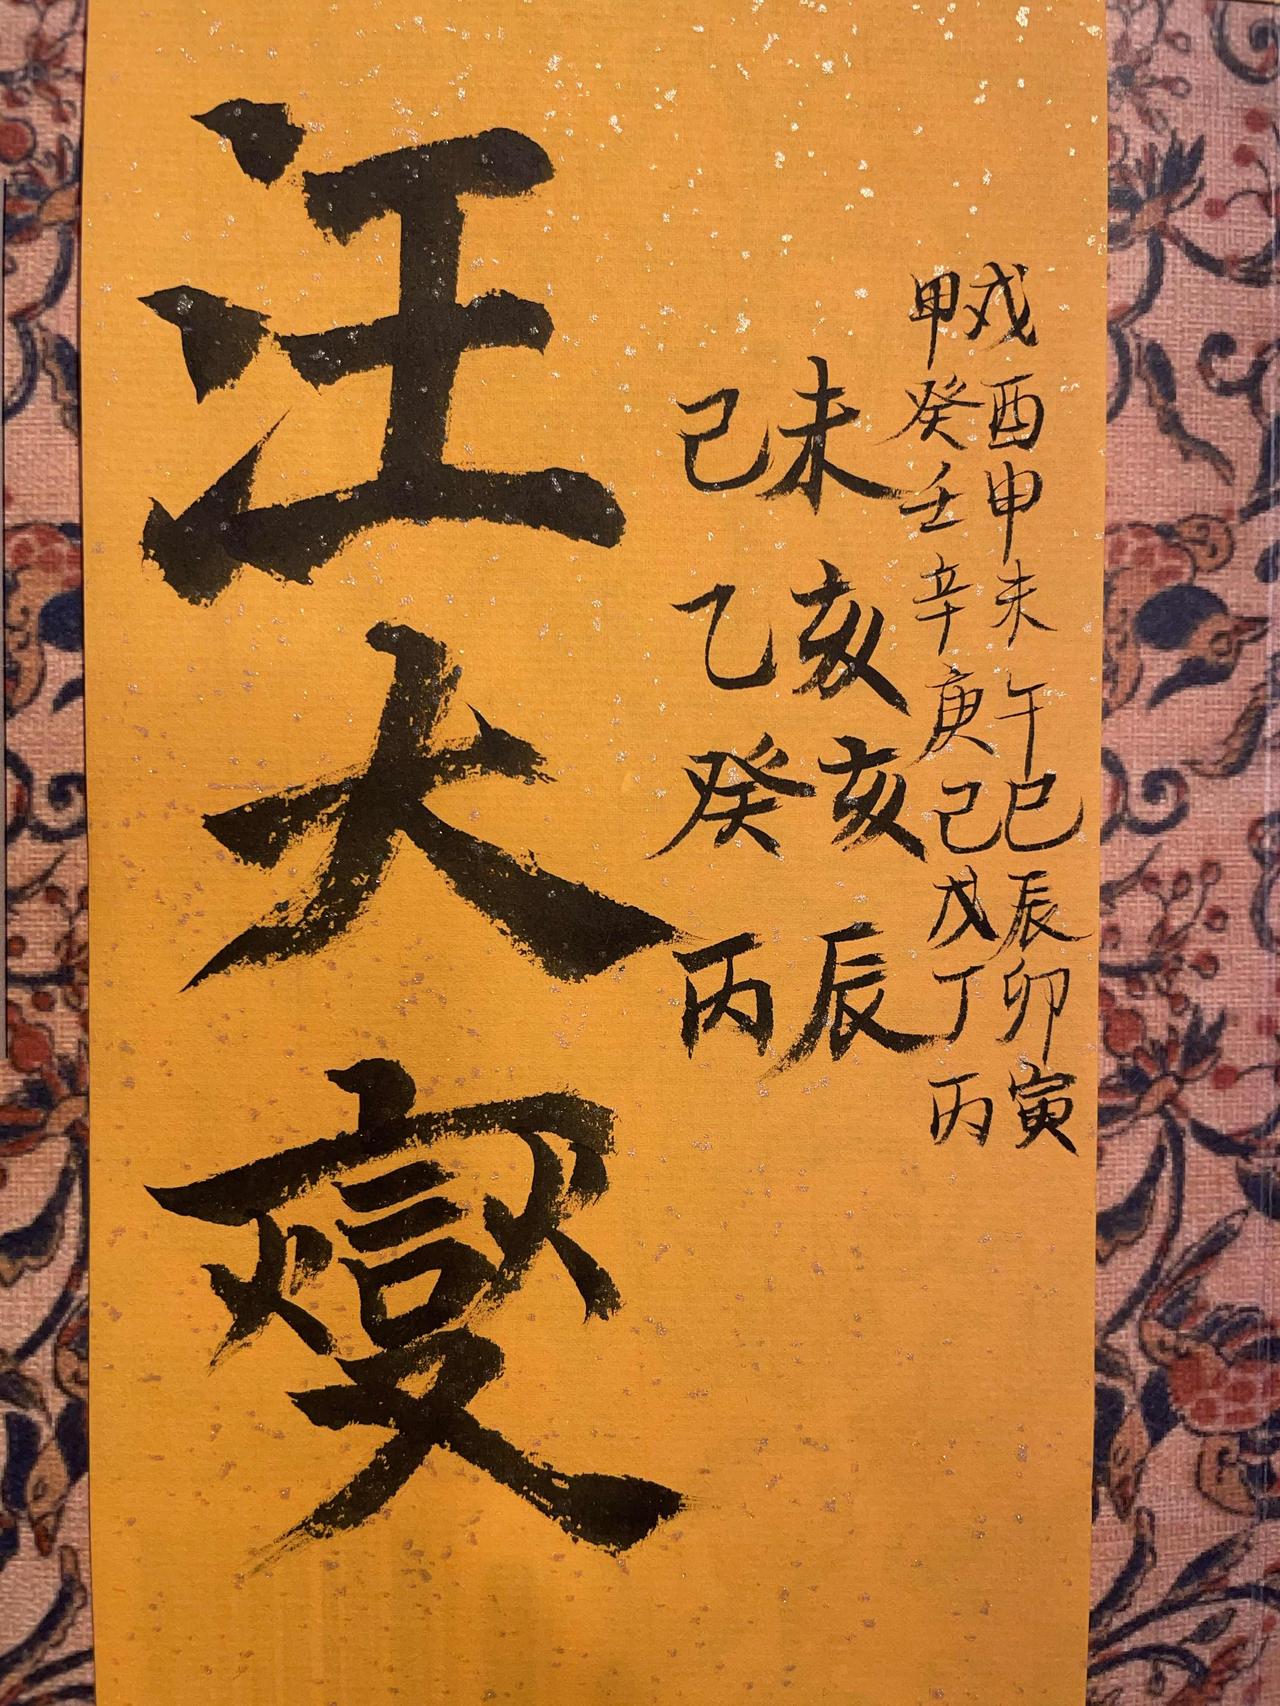 汪大燮
己未
乙亥
癸亥
丙辰
甲戌
癸酉
壬申
辛未
庚午
己巳
戊辰
丁卯
丙寅